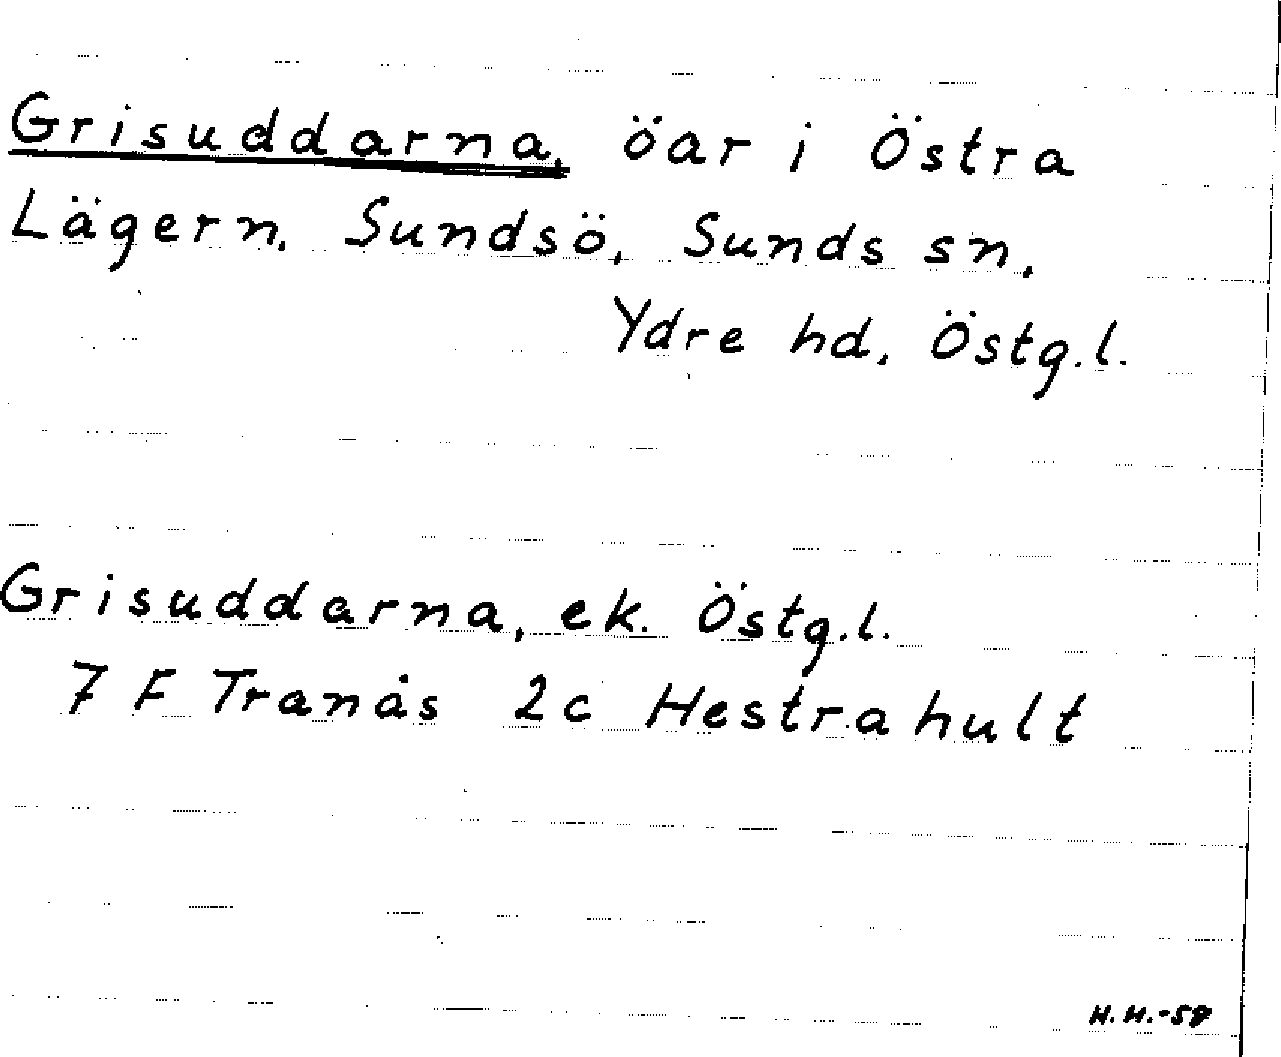 Grisuddarna, öar i Östra
Lägern. Sundsö, Sunds sn,
Ydre hd, Östg.l.
Grisuddarna, ek. Östg.l.
7 F Tranås 2c Hestrahult
H.H.-58